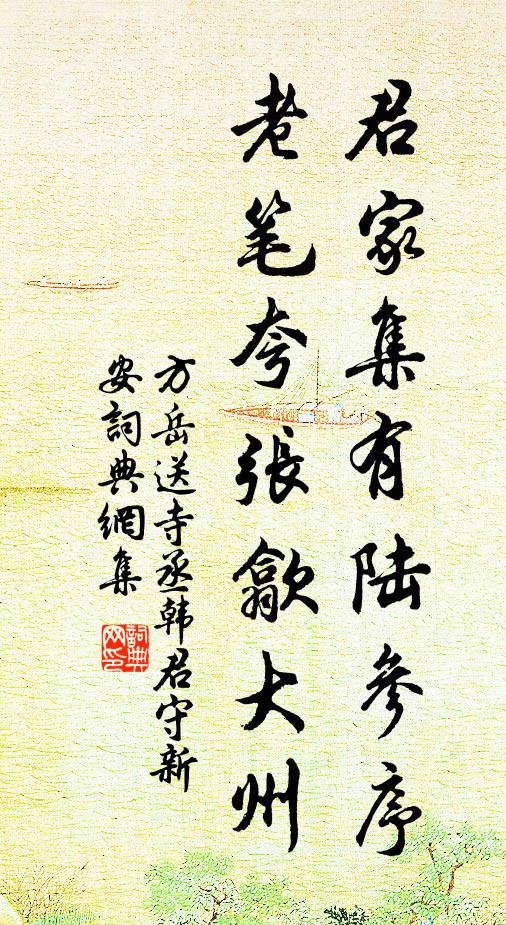 君家集有陆參序
老笔夸張歙大州
方岳送寺丞韩君守新
安詞典網集
詞典
网印